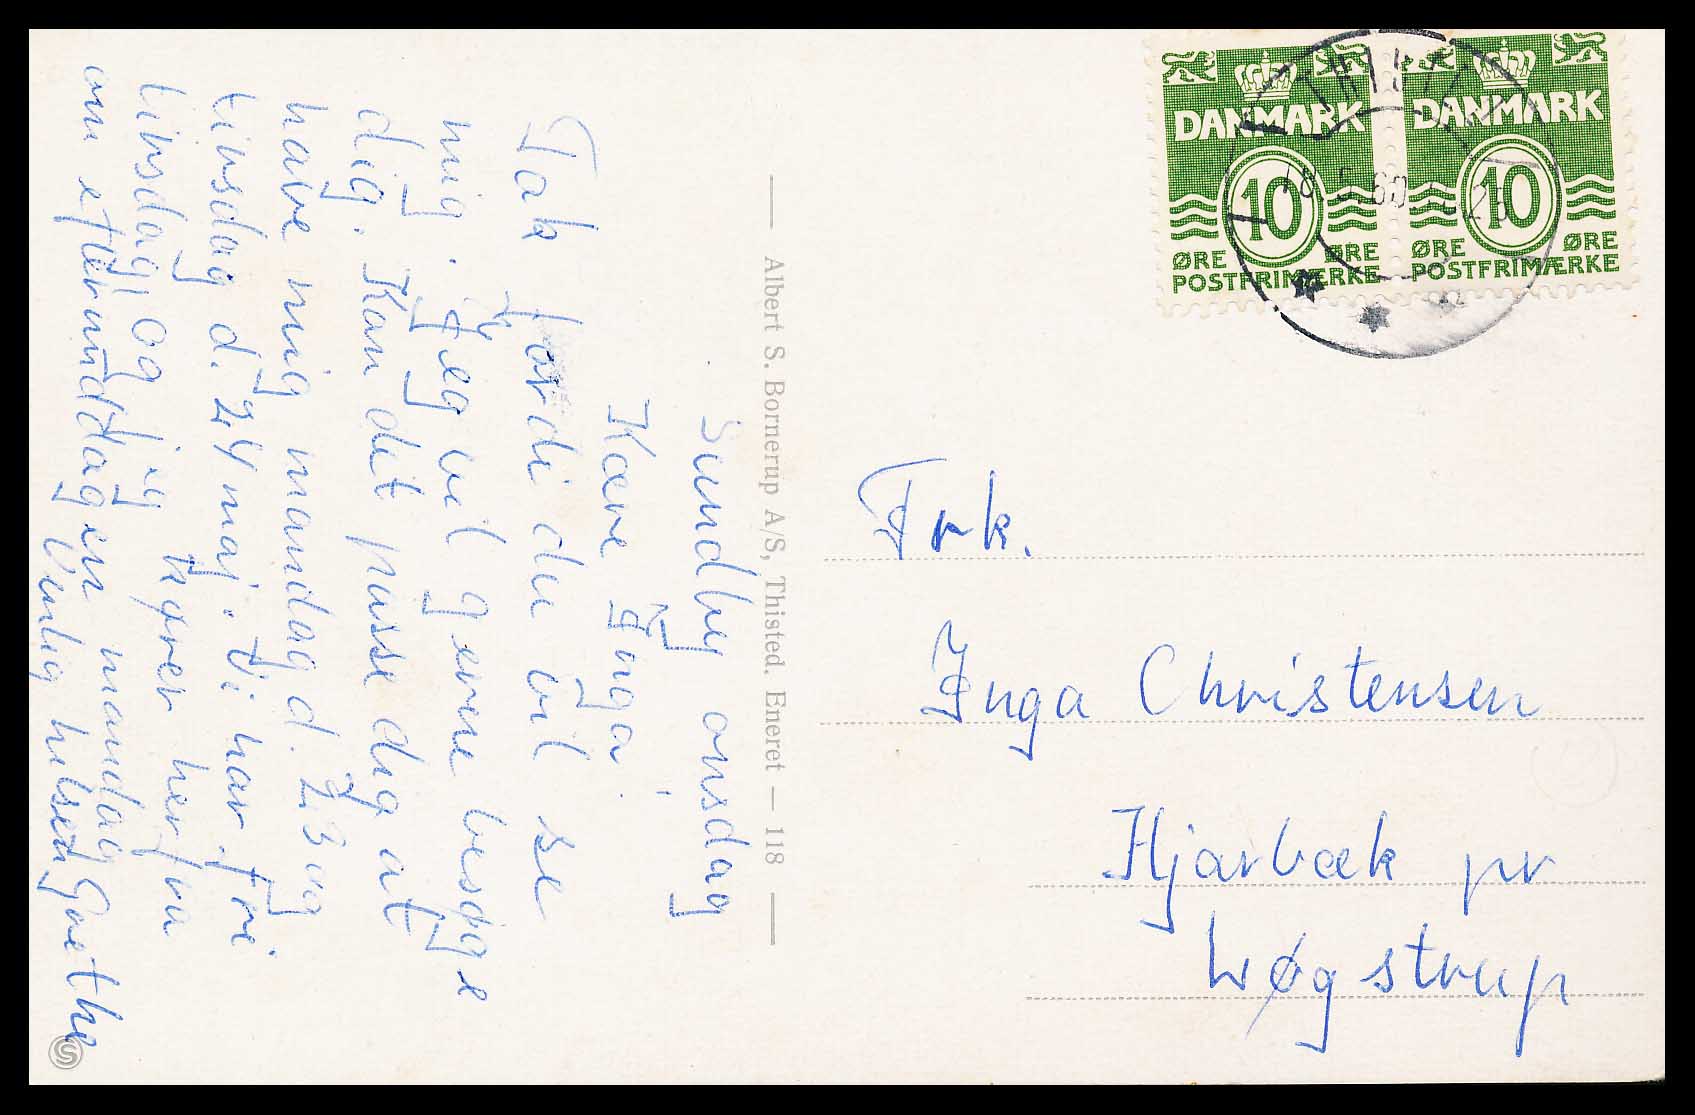 Sundby onsdag
Kære Inga.
Tak fordi du vil se
mig. Jeg vil gerne besøge
dig. Kan det passe dig at
have mig mandag d. 23 og
tirsdag d. 24 maj. Vi har fri
tirsdag og jeg kører herfra
om eftermiddagen mandag
Venlig hilsen Grethe
Albert S. Bornerup A/S, Thisted. Eneret — 118
DANMARK
10
ØRE ØRE
POSTFRIMÆRKE
DANMARK
10
ØRE ØRE
POSTFRIMÆRKE
Frk.
Inga Christensen
Hjarbæk pr
Løgstrup